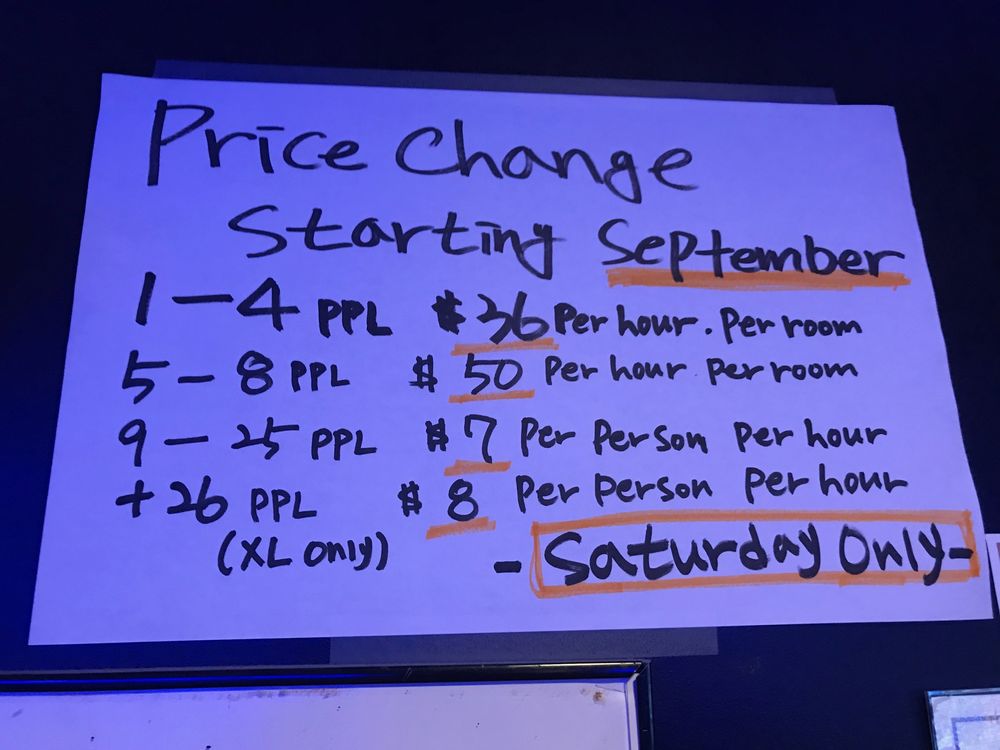 Price Change
Starting September
1 - 4 PPL $36 Per hour. Per room
5 - 8 PPL $50 Per hour Per room
9 - 25 PPL $7 Per Person Per hour
+26 PPL $8 Per Person Per hour
(XL only)
- Saturday Only -